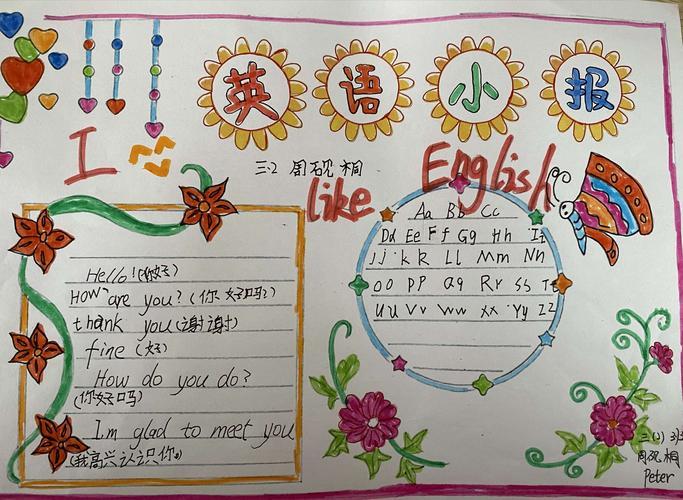 英语小报
I
三.2 周砚桐
like
English
Hello! (你好)
How are you? (你好吗?)
thank you (谢谢)
fine (好)
How do you do?
(你好吗)
I'm glad to meet you
(我高兴认识你。)
Aa Bb Cc
Dd Ee Ff Gg Hh Ii
Jj Kk Ll Mm Nn
Oo Pp Qq Rr Ss Tt
Uu Vv Ww Xx Yy Zz
周砚桐
Peter